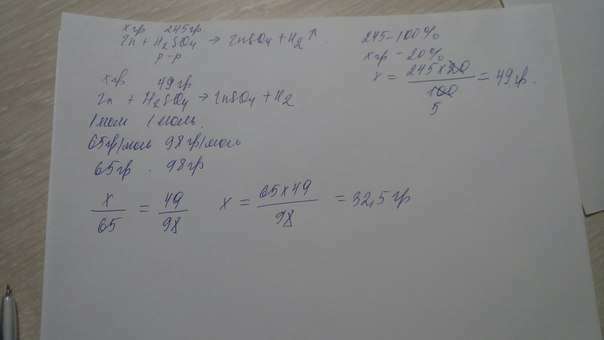 x гр 245гр
Zn + H2SO4 → ZnSO4 + H2↑
р-р
245 - 100%
x гр - 20%
x = 245 x 20 / 100 = 49 гр.
5
x гр 49 гр
Zn + H2SO4 → ZnSO4 + H2
1 моль 1 моль.
65 гр/моль 98 гр/моль
65 гр . 98 гр
x / 65 = 49 / 98 x = 65 x 49 / 98 = 32,5 гр